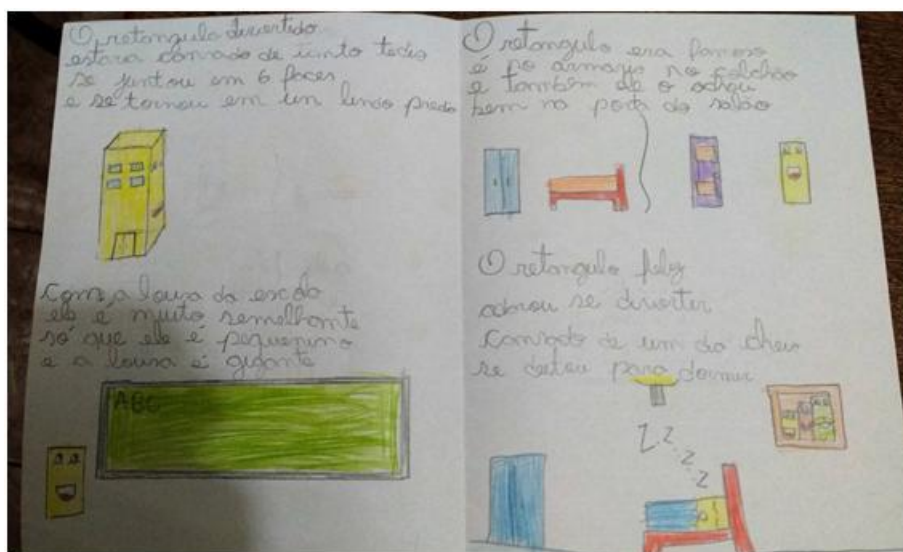 O retangulo divertido
estava cansado de tanto tedio
se juntou em 6 faces
e se tornou em un lindo predio
Com a lousa da escola
ele é muito semelhante
só que ele é pequenino
e a lousa é gigante
ABC
O retangulo era famoso
é no armario no colchão
e também ele o achou
bem na porta do salão
O retangulo feliz
adorou se divertir
cansado de um dia cheio
se deitou para dormir
Z Z Z Z